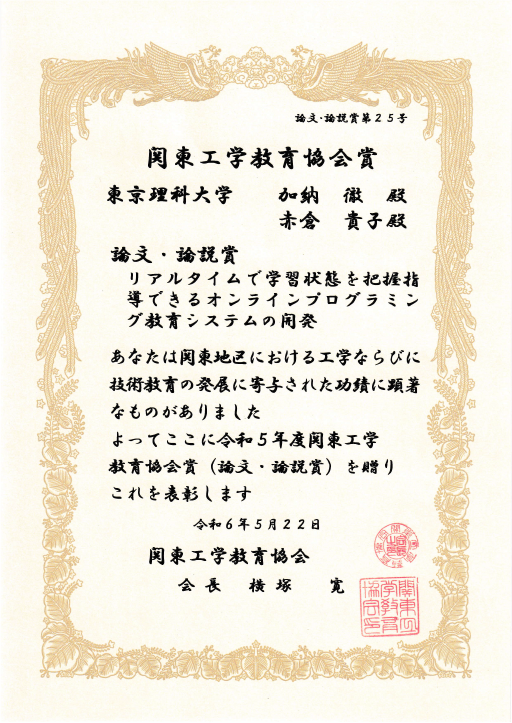 論文・論説賞第25号
関東工学教育協会賞
東京理科大学 加納 徹 殿
赤倉 貴子殿
論文・論説賞
リアルタイムで学習状態を把握指
導できるオンラインプログラミン
グ教育システムの開発
あなたは関東地区における工学ならびに
技術教育の発展に寄与された功績に顕著
なものがありました
よってここに令和5年度関東工学
教育協会賞(論文・論説賞)を贈り
これを表彰します
令和6年5月22日
関東工学教育協会
会長 横塚 寛